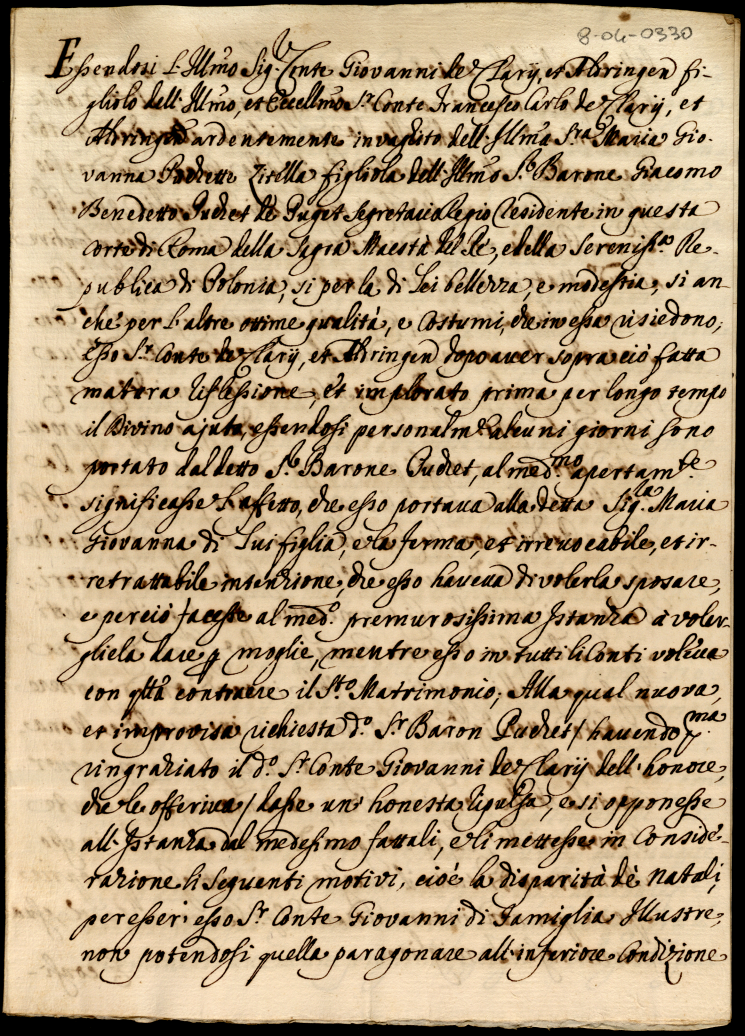 8-04-0330
Essendosi l'Illmo Sig.r Conte Giovanni de Clary, et Aldringen fi-
gliolo dell'Illmo, et Eccellmo Sr Conte Francesco Carlo de Clary, et
Aldringen ardentemente invaghito dell'Illma Sra Maria Gio-
vanna Pudiette Zitella figliola dell'Illmo S.r Barone Giacomo
Benedetto Pudiet de Puget Segretario Regio Residente in questa
Corte di Roma della Sagra Maestà del Rè, e della Sereniss.a Re-
publica di Polonia, si per la di Lei bellezza, e modestia, si an-
che per l'altre ottime qualità, e Costumi, che in essa risiedono;
Esso S.r Conte de Clary, et Aldringen dopo aver sopra ciò fatta
matura riflessione, et implorato prima per longo tempo
il Divino ajuto, essendosi personalm.te alcuni giorni sono
portato dal detto S.r Barone Pudiet, al med.mo apertam.te
significasse l'affetto, che esso portava alla detta Sig.ra Maria
Giovanna di Lui figlia, e la ferma, et irrevocabile, et ir-
retrattabile intenzione, che esso haveva di volerla sposare,
e perciò facesse al med.o premurosissima Istanza à voler-
gliela dare p moglie, mentre esso in tutti li Conti voleva
con qtta contraere il S.to Matrimonio; Alla qual nuova,
et improvisa richiesta d.o S.r Baron Pudiet / havendo p.ma
ringraziato il d.o S.r Conte Giovanni de Clary dell'honore,
che le offeriva / dasse un'honesta ripulsa, e si opponesse
all'Istanza dal medesimo fattali, e li mettesse in Conside-
razione li seguenti motivi, cioè la disparità de natali,
per esser' esso S.r Conte Giovanni di Famiglia Illustre,
non potendosi quella paragonare all'inferiore Condizione